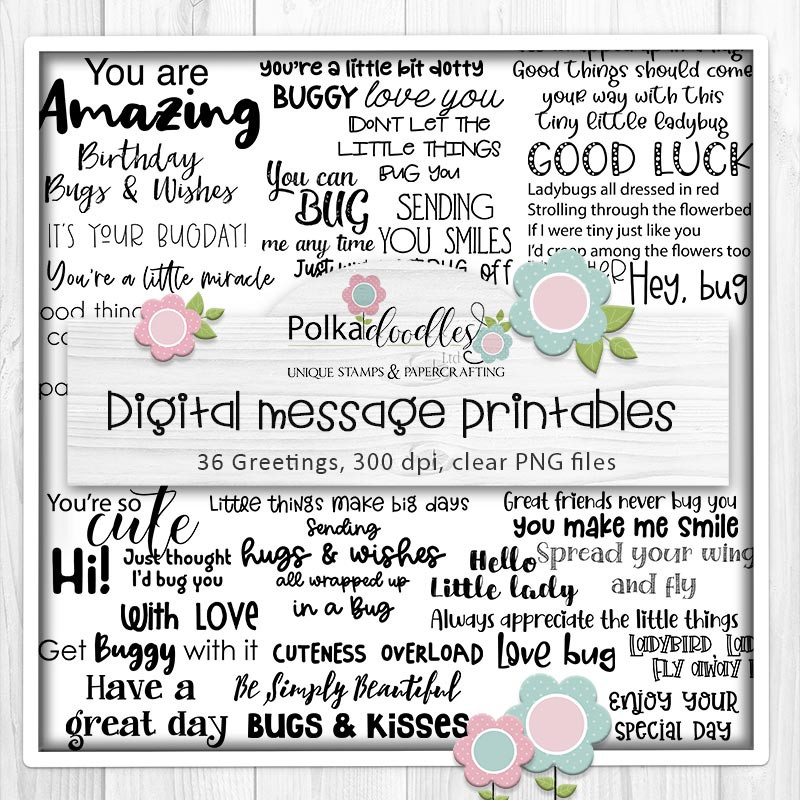 You are
Amazing
Birthday
Bugs & Wishes
IT'S YOUR BUGDAY!
You're a little miracle
ood thing
you're a little bit dotty
BUGGY love you
DON'T LET THE
LITTLE THINGS
BUG YOU
You can
BUG
me any time
SENDING
YOU SMILES
Just
BUG off
Good things should come
your way with this
tiny little ladybug
GOOD LUCK
Ladybugs all dressed in red
Strolling through the flowerbed
If I were tiny just like you
I'd creep among the flowers too
Hey, bug
Polkadoodles
Ltd
UNIQUE STAMPS & PAPERCRAFTING
Digital message printables
36 Greetings, 300 dpi, clear PNG files
You're so
cute
Little things make big days
Great friends never bug you
you make me smile
Sending
hugs & wishes
all wrapped up
in a Bug
Hi!
Just thought
I'd bug you
Hello
Little lady
Spread your wing
and fly
With LOVE
Always appreciate the little things
Get Buggy with it
CUTENESS OVERLOAD
Love bug
LADYBIRD, LAD
FLY AWAY
Have a
great day
Be Simply Beautiful
BUGS & KISSES
ENJOY YOUR
SPECIAL DAY